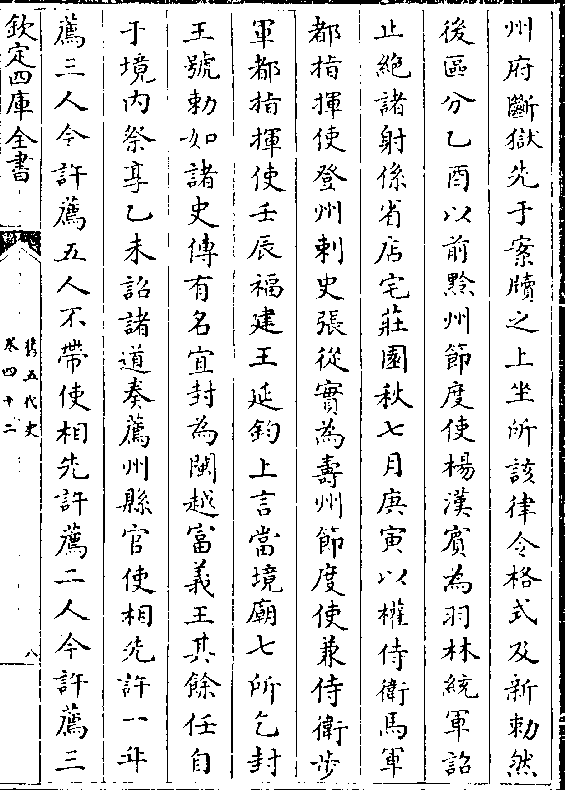 州府斷獄先于案牘之上坐所該律令格式及新勅然
後區分乙酉以前黔州節度使楊漢賓為羽林統軍詔
止絶諸射係省店宅莊園秋七月庚寅以權侍衛馬軍
都指揮使登州刺史張從賓為壽州節度使兼侍衛步
軍都指揮使壬辰福建王延鈞上言當境廟七所乞封
王號勅如諸史傳有名宜封為閩越富義王其餘任自
于境内祭享乙未詔諸道奏薦州縣官使相先許一年
薦三人今許薦五人不帶使相先許薦二人今許薦三
欽定四庫全書
舊五代史
卷四十二
八